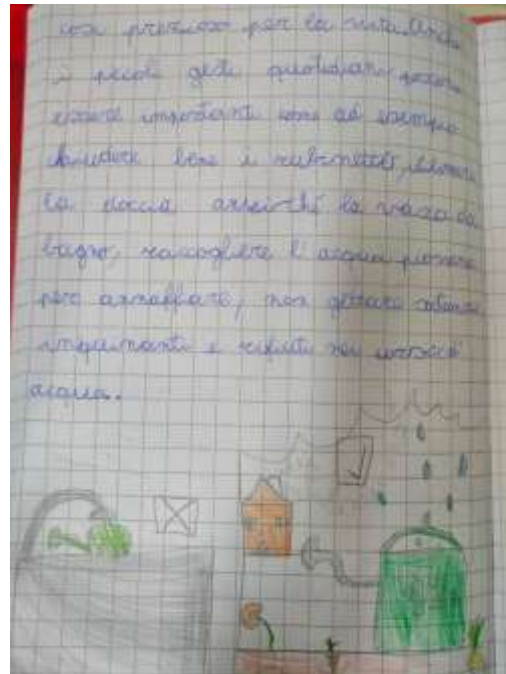 così prezioso per la vita. Anche
i piccoli gesti quotidiani
essere importanti come ad esempio
chiudere bene i rubinetti,
la doccia anziché la vasca da
bagno, raccogliere l'acqua piovana
per annaffiare, non gettare
inquinanti e rifiuti nei corsi d'
acqua.